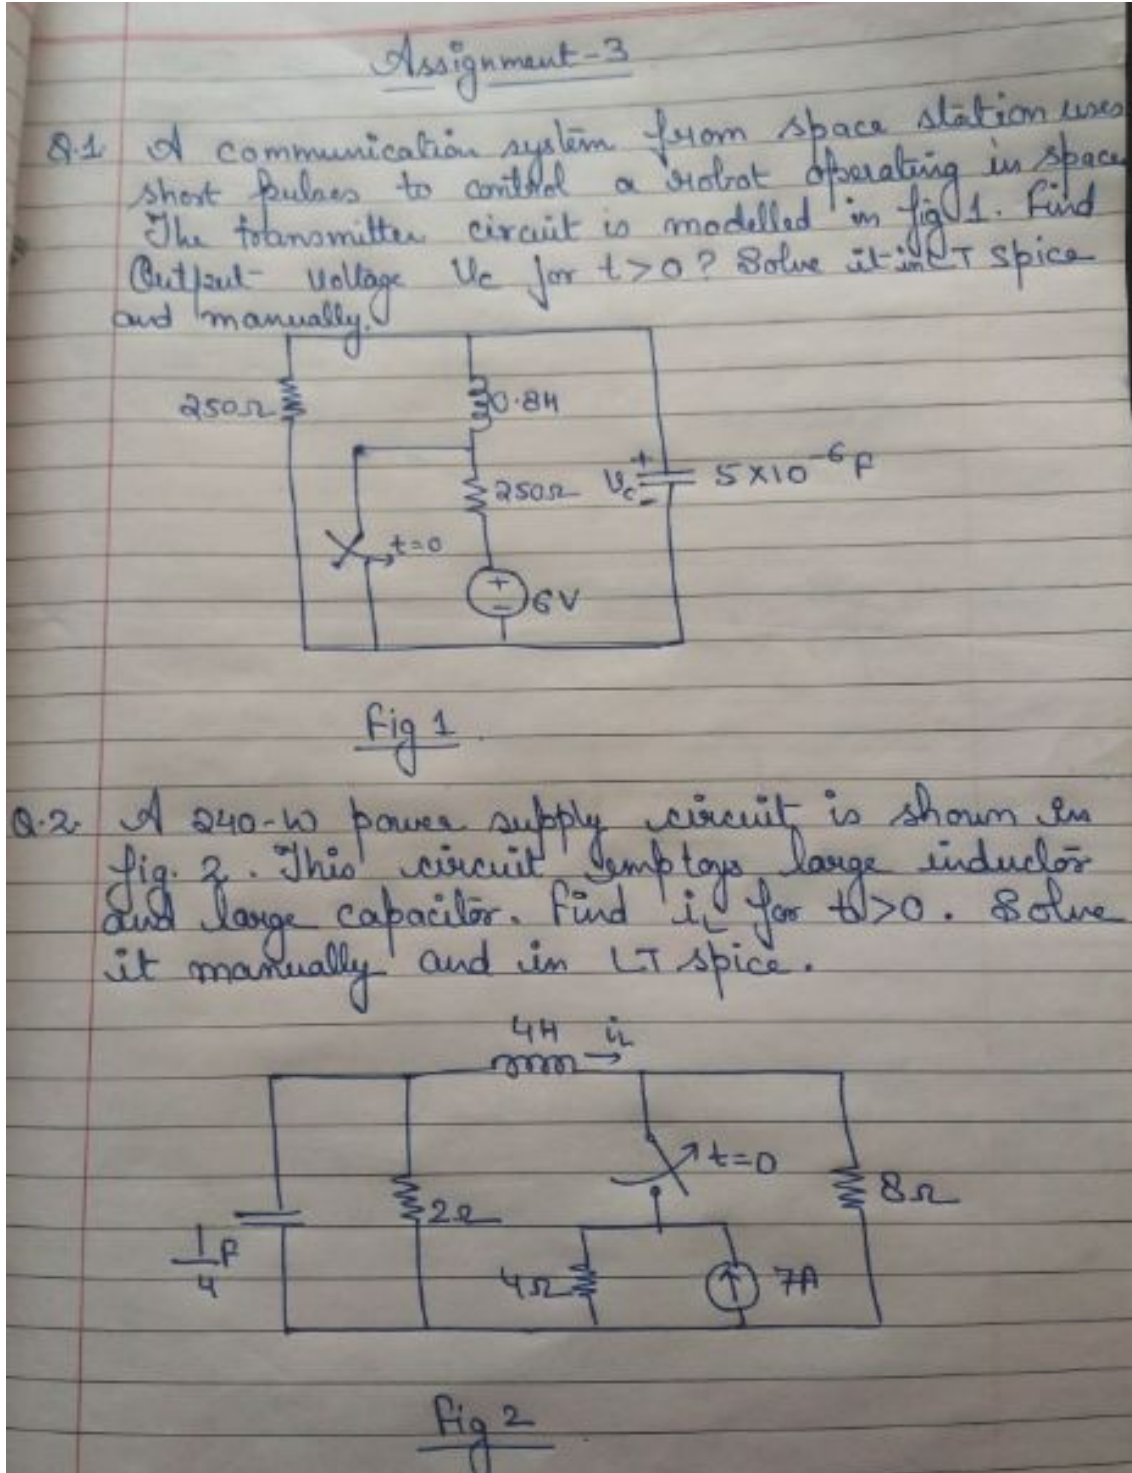 Assignment-3
Q.1 A communication system from space station uses
short pulses to control a robot operating in space
The transmitter circuit is modelled in fig 1. Find
Output voltage Vc for t>0? Solve it in LT spice
and manually.
250Ω
0.8H
250Ω
Vc
+
-
5X10-6F
t=0
+
-
6V
Fig 1
Q.2. A 240-W power supply circuit is shown in
fig. 2. This circuit employs large inductor
and large capacitor. Find iL for t>0. Solve
it manually and in LT spice.
4H iL
t=0
8Ω
2Ω
1/4 F
4Ω
7A
Fig 2